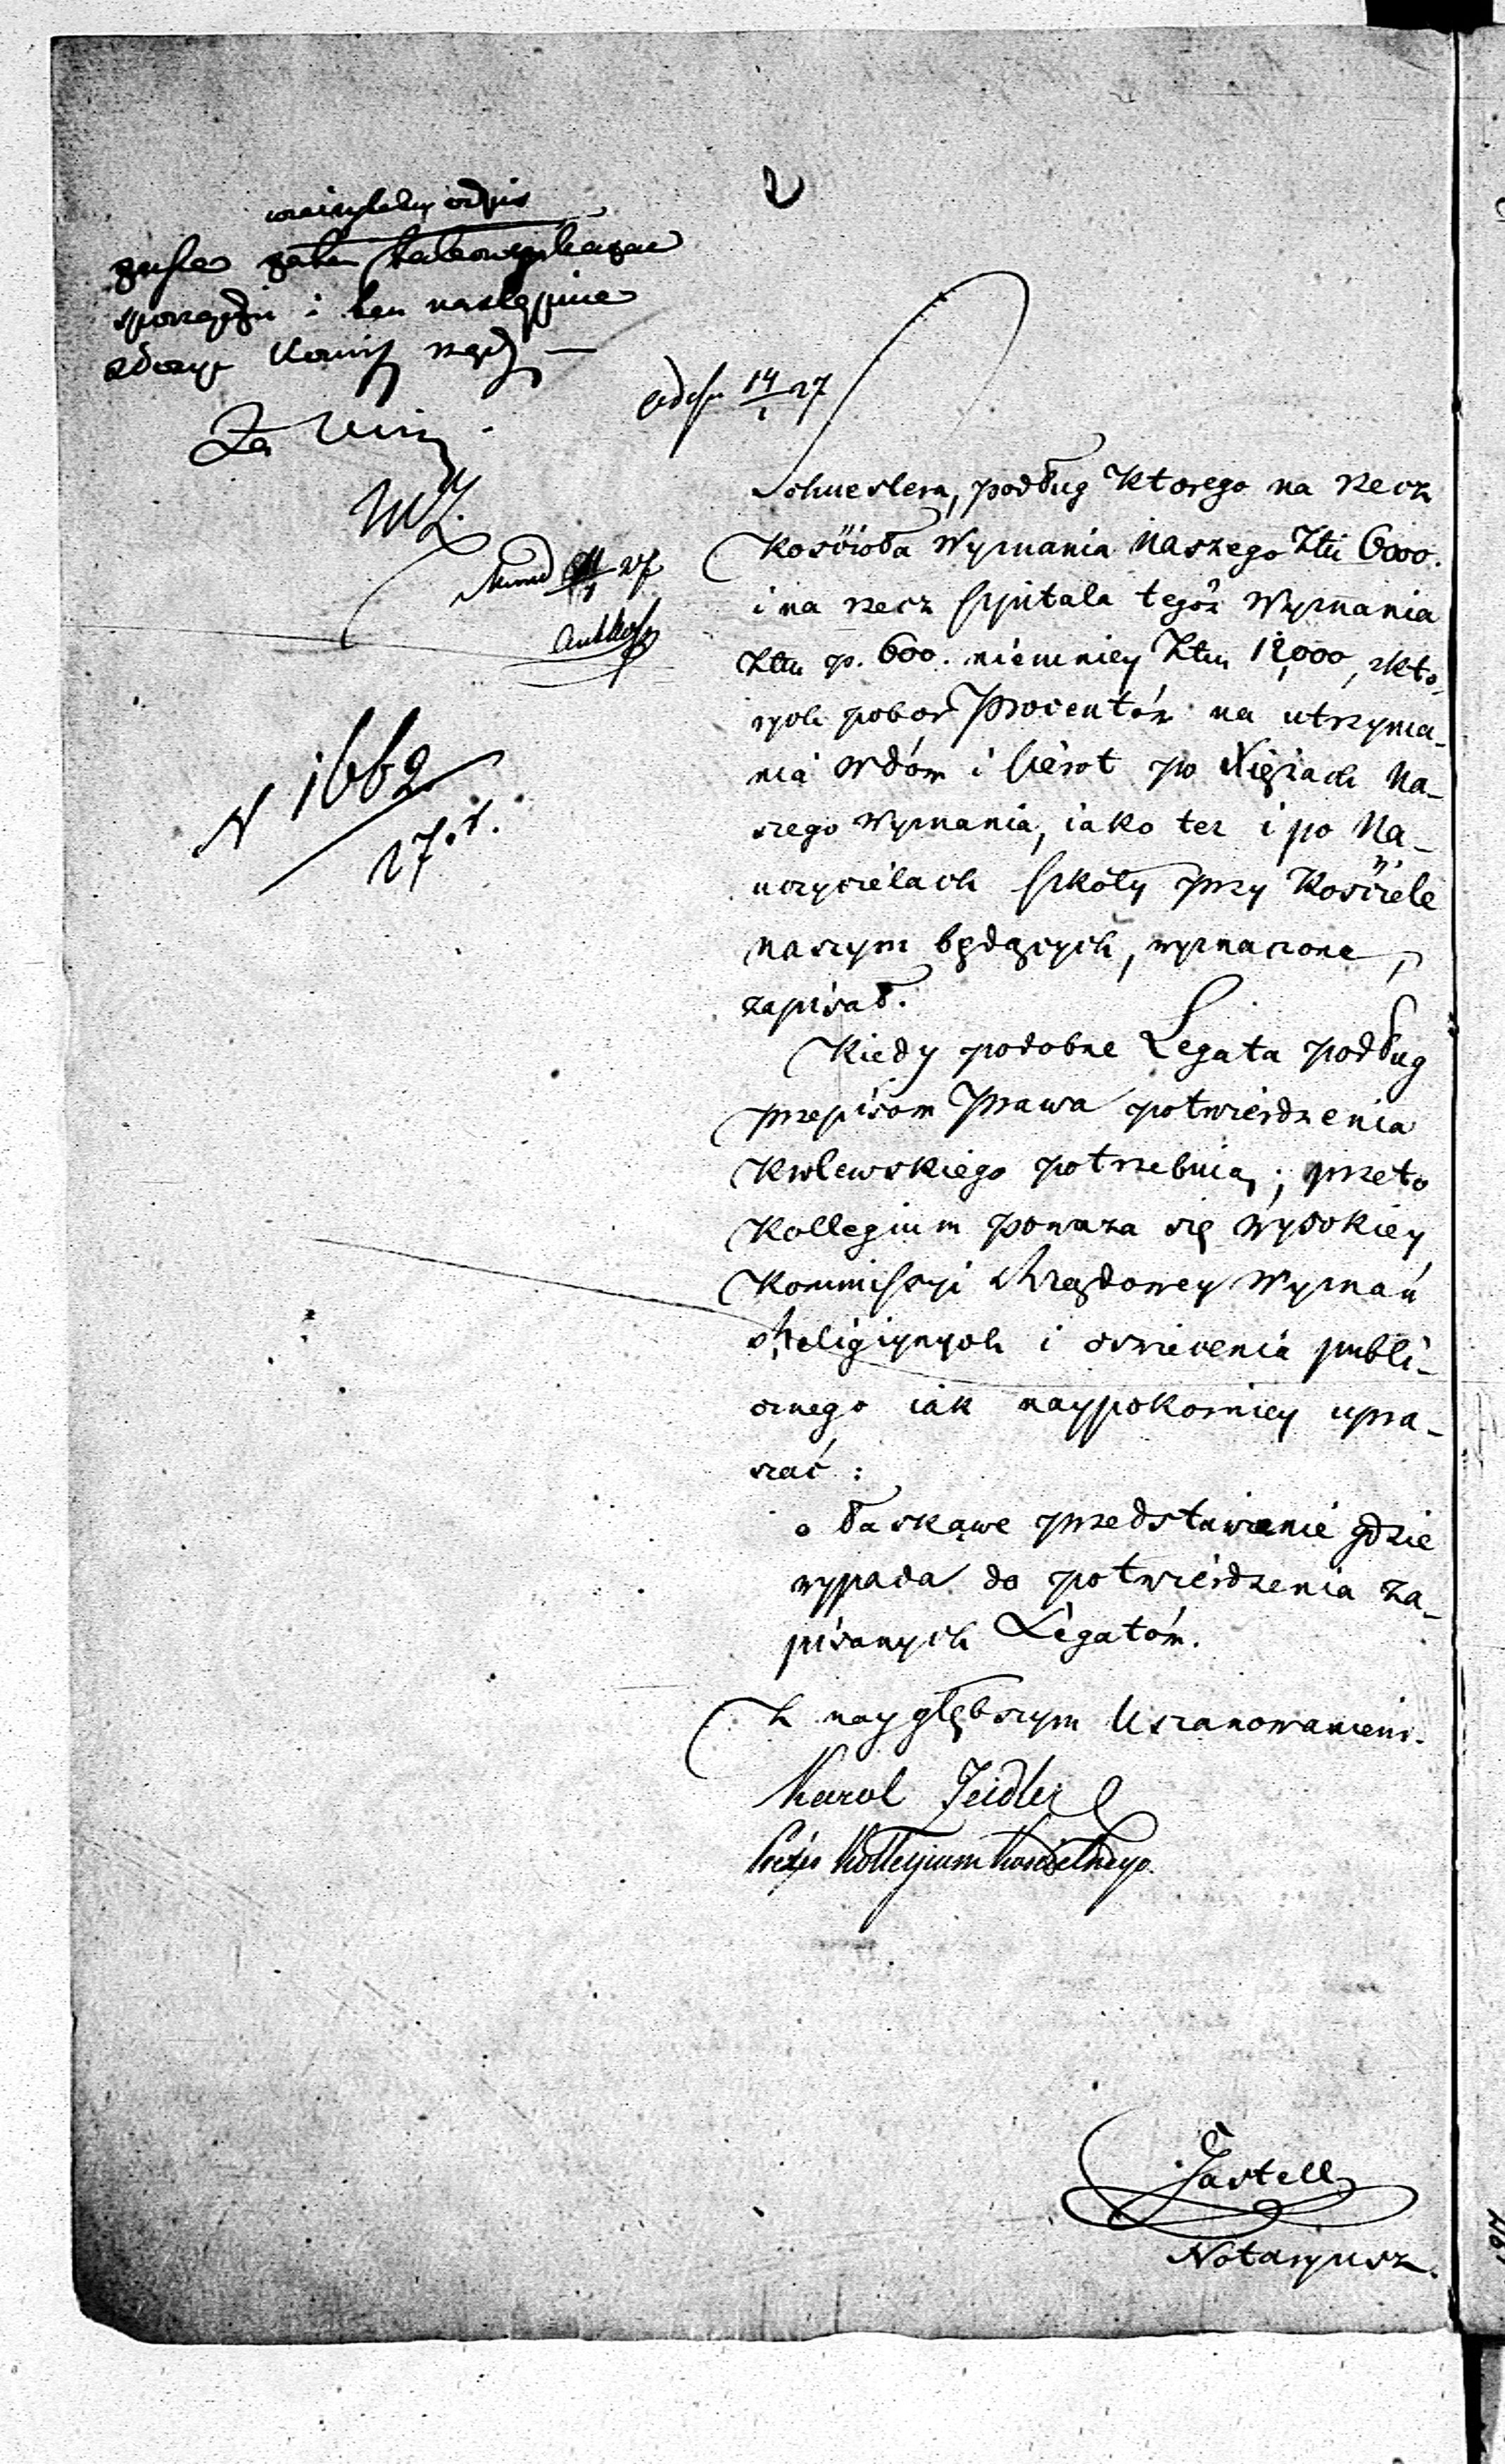 wierzytelny odpis
sporządzi i ten następnie
złoży Komis rząd —
Za Min
MZ.
14/1 27
N 1662
27. r.
Schueslera, podług ktorego na rzecz
Kościoła Wyznania Naszego Złtü 6000.
i na rzecz szpitala tegóż Wyznania
Złtü p. 600. niemniey Złtü 18,000, z kto-
rych pobor Procentów na utrzyma-
nia wdów i sierot po Xiężach Na-
szego Wyznania, iako tez i po Na-
uczycielach szkoły przy Kościele
naszym będących, wyznaczone,
zapisał.
Kiedy podobne Legata podług
przepisow Prawa potwierdzenia
Krolewskiego potrzebuią; przeto
Kollegium poważa się Wysokiey
Kommissyi Rządowey Wyznań
Religiynych i oswiecenia publi-
cznego iak naypokorniey upra-
szać:
o łaskawe przedstawienie gdzie
wypada do potwierdzenia za-
pisanych Légatów.
Z naygłębszym Uszanowaniem.
Karol Zeidler
Prezes Kollegium Kościelnego.
Jastell
Notaryusz.